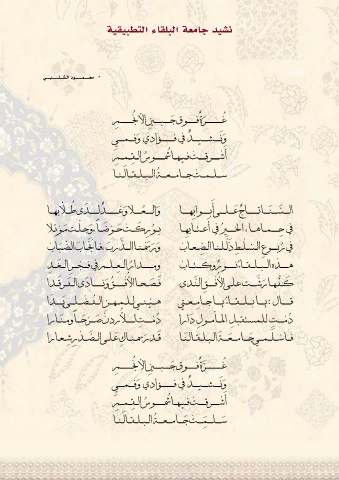 نشيد جامعة البلقاء التطبيقية
محمود الشلبي
غرة فوق جبين الأنجم
ونشيد في فؤادي وفمي
أشرقت فيها شموس القمم
سلمت جامعة البلقا لنا
السنا تاج على أبوابها والعلا وعد لدى طلابها
في حماها، الخير في أعتابها بوركت حوضا، وجلت موئلا
في ربوع السلط ذللنا الصعاب ورسمنا الدرب فانجاب الضباب
هذه البلقاء: نور وكتاب ومدار العلم في فجر الغد
كلما رفت على الأفق الندى فصحا الأفق ونادى الفرقدا
قال: يا بلقاء يا جامعتي هيئي للمهن الفضلى يدا
دمت للمستقبل المأمول دارا دمت للأردن صرحا ومنارا
فاسلمي جامعة البلقا لنا قد رسمناك على الصدر شعارا
غرة فوق جبين الأنجم
ونشيد في فؤادي وفمي
أشرقت فيها شموس القمم
سلمت جامعة البلقا لنا